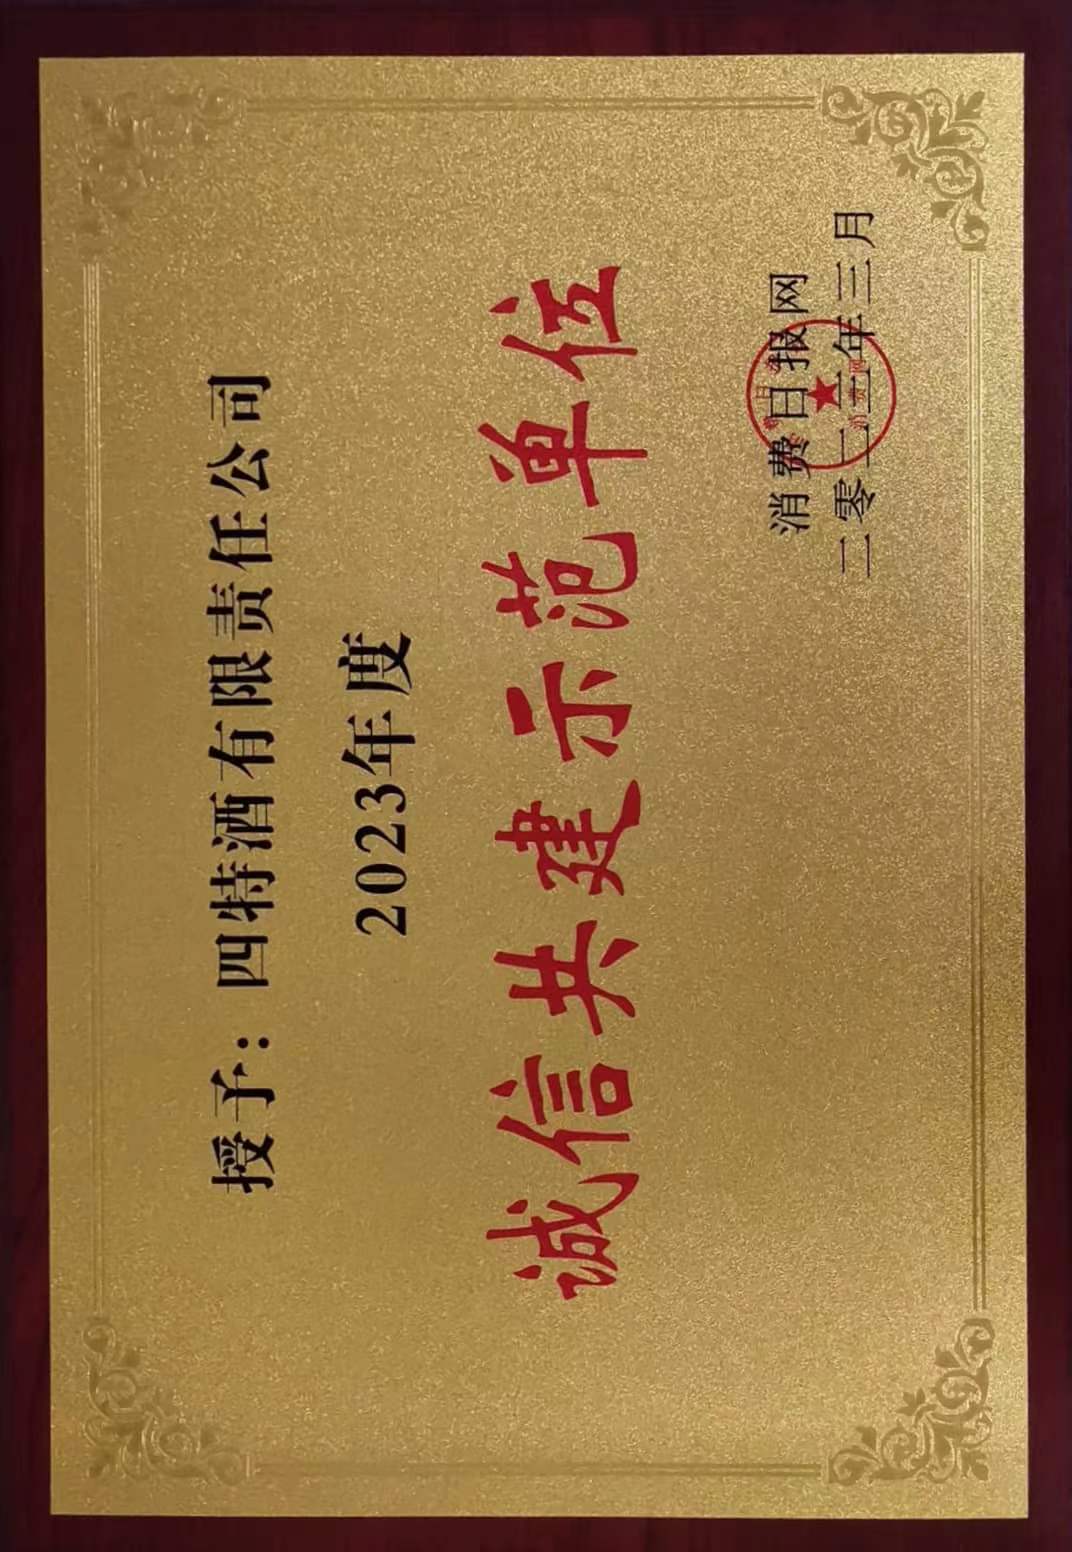 授予：四特酒有限责任公司
2023年度
诚信共建示范单位
消费日报网
二零二三年三月
消费网